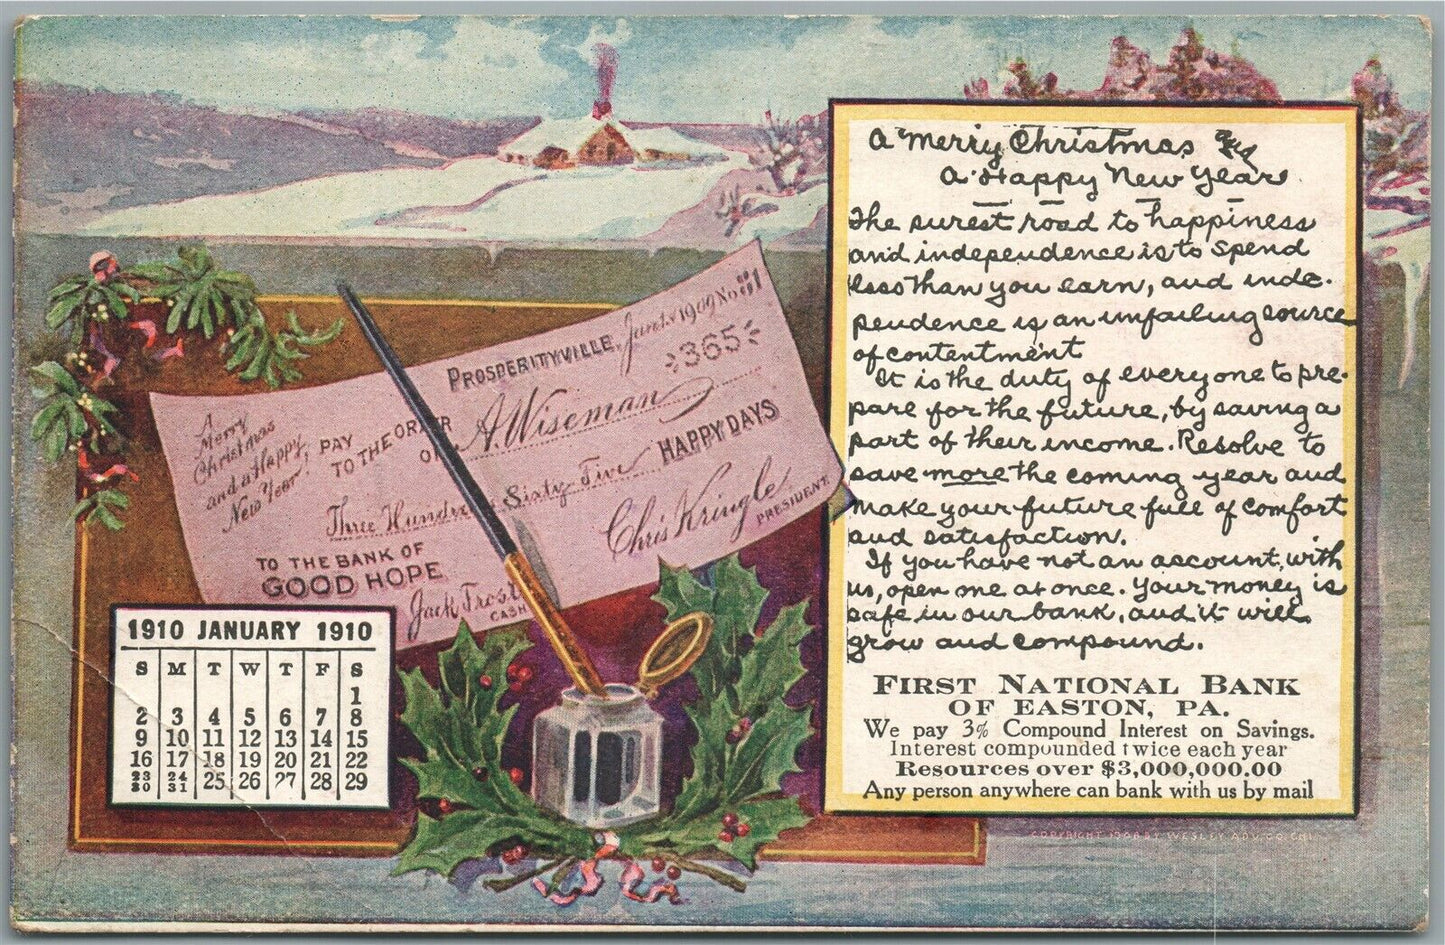 A Merry Christmas and
A Happy New Year
The surest road to happiness
and independence is to spend
less than you earn, and inde-
pendence is an unfailing source
of contentment
It is the duty of everyone to pre-
pare for the future, by saving a
part of their income. Resolve to
save more the coming year and
make your future full of comfort
and satisfaction.
If you have not an account, with
us, open one at once. Your money is
safe in our bank, and it will
grow and compound.
FIRST NATIONAL BANK
OF EASTON, PA.
We pay 3% Compound Interest on Savings.
Interest compounded twice each year
Resources over $3,000,000.00
Any person anywhere can bank with us by mail
PROSPERITYVILLE, 1909 No
365
A Merry Christmas and a Happy New Year
PAY TO THE ORDER OF A. Wiseman
Three Hundred Sixty Five HAPPY DAYS
TO THE BANK OF
GOOD HOPE
Chris Kringle
PRESIDENT
Jack Frost
CASH
1910 JANUARY 1910
S M T W T F S
1
2 3 4 5 6 7 8
9 10 11 12 13 14 15
16 17 18 19 20 21 22
23/30 24/31 25 26 27 28 29